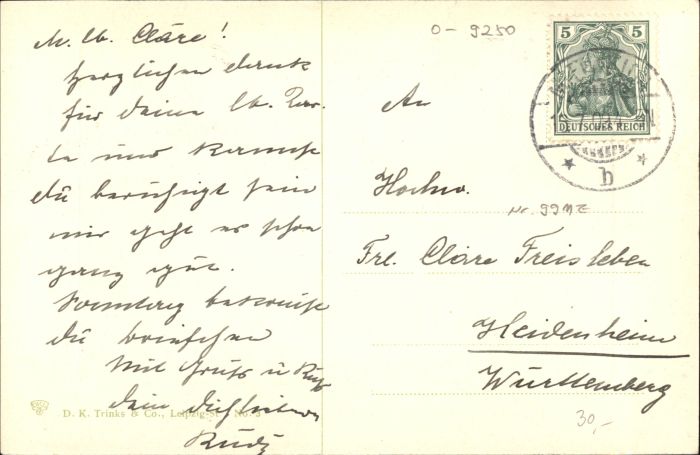 M. lb. Cläre!
Herzlichen Dank
für deine lb. Kar-
te und kannst
du beruhigt sein
mir geht es schon
ganz gut.
Sonntag bekommst
du Briefchen
Mit Gruß u Kuß
dein dich
Rudi
D. K. Trinks & Co., Leipzig-St. No. 3
0- 9250
5 5
DEUTSCHES REICH
b
An
Hochw.
Nr.
Frl. Cläre Freisleben
Heidenheim
Württemberg
30,-